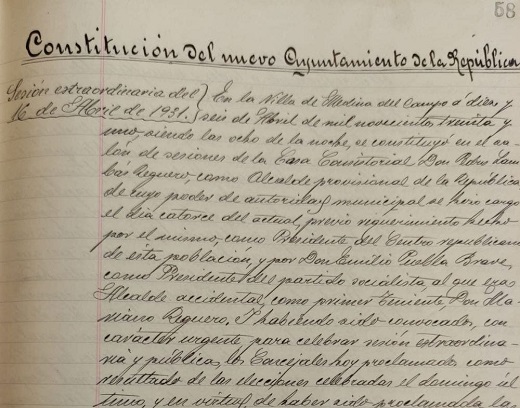 58
Constitución del nuevo Ayuntamiento de la República
Sesión extraordinaria del
16 de Abril de 1931.
En la Villa de Medina del Campo á diez y
seis de Abril de mil novecientos treinta y
uno, siendo las ocho de la noche, se constituyó en el sa-
lón de sesiones de la Casa Consistorial Don Pedro Lam-
bás Reguero, como Alcalde provisional de la República
de cuyo poder de autoridad municipal se hizo cargo
el día catorce del actual, previo requerimiento hecho
por el mismo, como Presidente del Centro republicano
de esta población, y por Don Emilio Puella Bravo,
como Presidente del partido socialista, al que era
Alcalde accidental, como primer teniente, Don Ma-
riano Reguero, Y habiendo sido convocados, con
carácter urgente, para celebrar sesión extraordina-
ria y pública, los Concejales hoy proclamados como
resultado de las elecciones celebradas el domingo úl-
timo, y en virtud de haber sido proclamada la